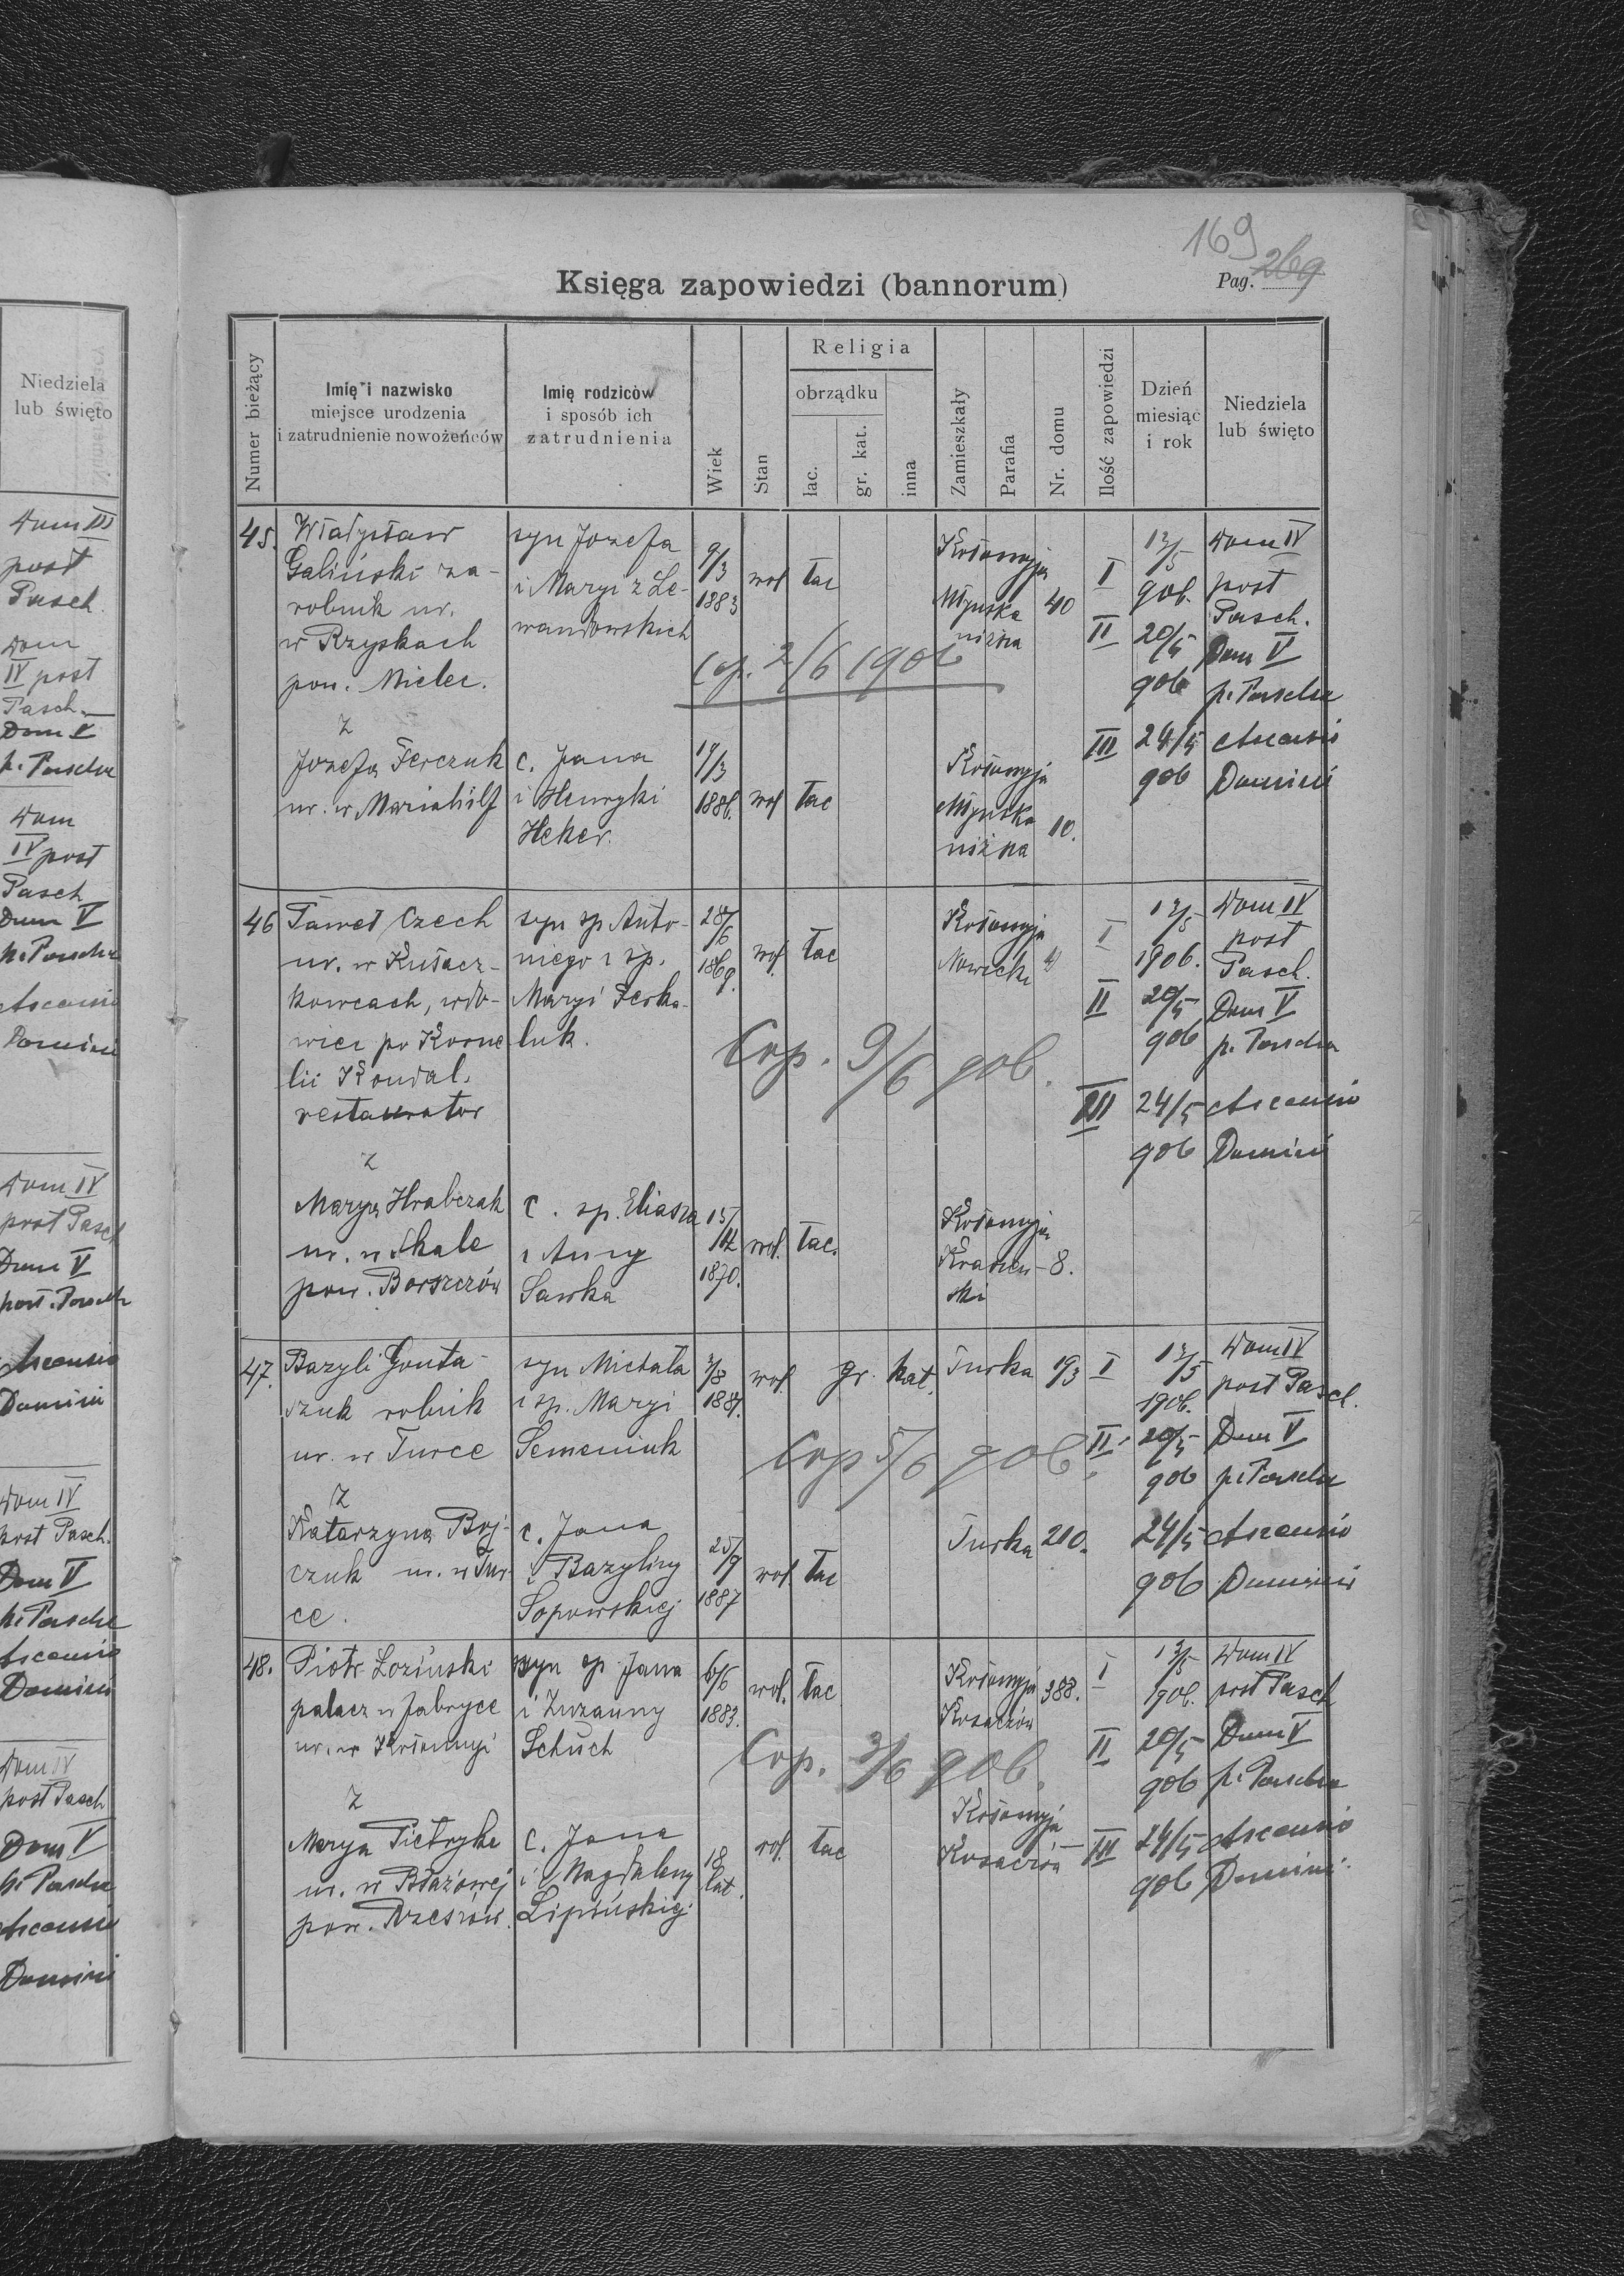 169
Księga zapowiedzi (bannorum)
Pag. 269
Numer bieżący
Imię i nazwisko
miejsce urodzenia
i zatrudnienie nowożeńców
Imię rodziców
i sposób ich
zatrudnienia
Wiek
Stan
Religia
obrządku
łac.
gr. kat.
inna
Zamieszkały
Parafia
Nr. domu
Ilość zapowiedzi
Dzień
miesiąc
i rok
Niedziela
lub święto
45.
Władysław
Galiński za-
robnik ur.
w Rzyskach
pow. Mielec.
syn Jozefa
i Maryi z Le-
wandowskich
9/3
1883
wol
łac
Kołomyja
Młynska
niżna
40
I
13/5
906.
Dom IV
post
Pasch.
II
20/5
906
Dom V
p. Pascha
Cop. 2/6 1906
III
24/5
906
Ascensio
Domini
z
Jozefa Ferczuk
ur. w Mariahilf
c. Jana
i Henryki
Heker.
19/3
1886.
wol
łac
Kołomyja
Młynska
niżna
10.
46
Paweł Czech
ur. w Kułacz-
kowcach, wdo-
wiec po Korne
lii Kondal.
restaurator
syn sp Anto-
niego i sp.
Maryi Ferka-
luk.
28/6
1869.
wol.
łac
Kołomyja
Nowicki
I
13/5
1906.
Dom IV
post
Pasch.
II
20/5
906
Dom V
p. Pascha
Cop. 9/6 906.
III
24/5
906
Ascensio
Domini
z
Marya Hrabczak
ur. w Skale
pow. Borszczów
c. sp. Eliasza
i Anny
Sawka
15/12
1870.
wol.
łac.
Kołomyja
Krasiew-
ski
8.
47.
Bazyli Gouta-
szuk rolnik
ur. w Turce
syn Michała
i sp. Maryi
Semeniuk
3/8
1881.
wol.
gr. kat.
Turka
193
I
13/5
1906.
Dom IV
post Pasch.
II
20/5
906
Dom V
p. Pascha
Cop 5/6 906.
z
Katarzyna Boj-
czuk ur. w Tur-
ce.
c. Jana
i Bazyliny
Sopowskiej
25/9
1887
wol.
łac
Turka
210.
24/5
906
Ascensio
Domini
48.
Piotr Łoziński
palacz w fabryce
ur. w Kołomyi
syn sp Jana
i Zuzanny
Schuch
6/6
1883.
wol.
łac
Kołomyja
Kosaczów
388.
I
13/5
1906.
Dom IV
post Pasch
II
20/5
906
Dom V
p. Pascha
Cop. 3/6 906.
z
Marya Pietryka
ur. w Błażowej
pow. Rzeszów.
c. Jana
i Magdaleny
Lipińskiej
18
lat.
wol.
łac
Kołomyja
Kosaczów
III
24/5
906
Ascensio
Domini
Niedziela
lub święto
Dom III
post
Pasch.
Dom
IV post
Pasch.
Dom V
p. Pascha
Dom
IV post
Pasch
Dom V
p. Pascha
Ascensio
Domini
Dom IV
post Pasch
Dom V
post. Pascha
Ascensio
Domini
Dom IV
post Pasch.
Dom V
p. Pascha
Ascensio
Domini
Dom IV
post Pasch
Dom V
p. Pascha
Ascensio
Domini